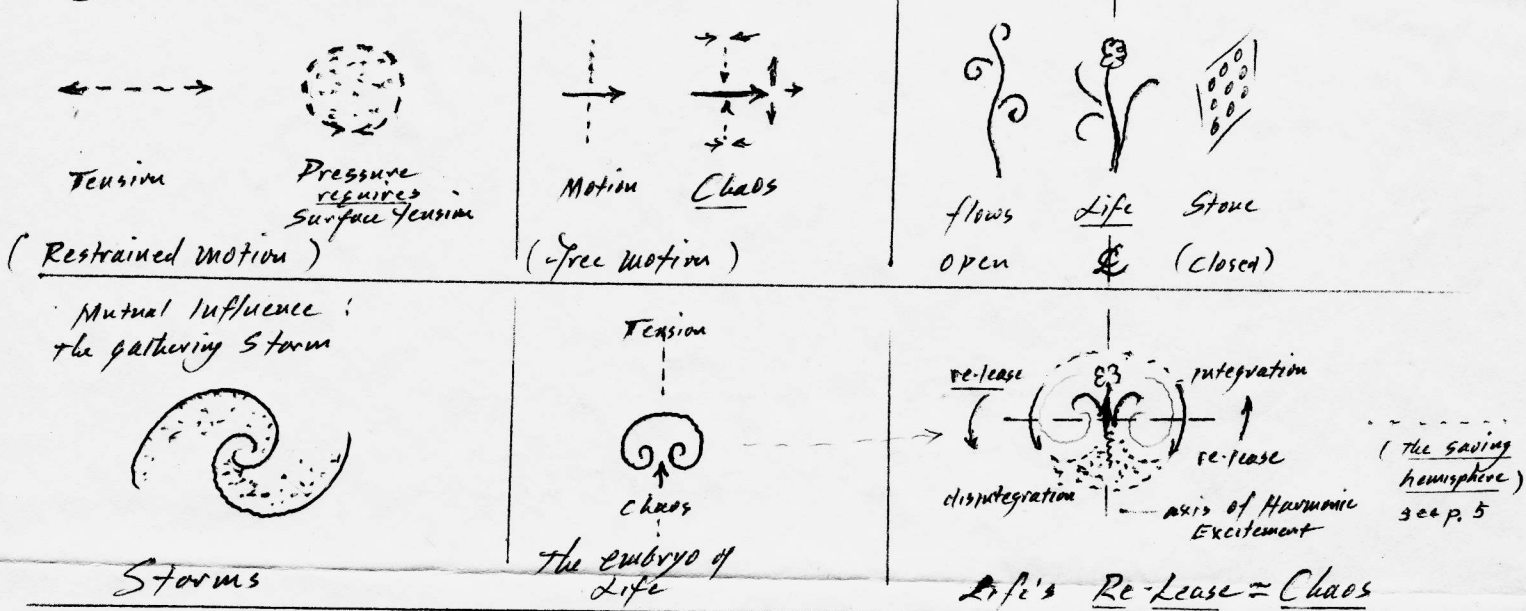 Tension
Pressure
requires
Surface Tension
(Restrained motion)
Motion
Chaos
(Free motion)
flows
Life
Stone
open
℄
(closed)
Mutual Influence:
the gathering Storm
Storms
Tension
Chaos
The embryo of
Life
re-lease
integration
re-lease
disintegration
axis of Harmonic
Excitement
(the saving
hemisphere)
see p. 5
Life's Re-Lease = Chaos